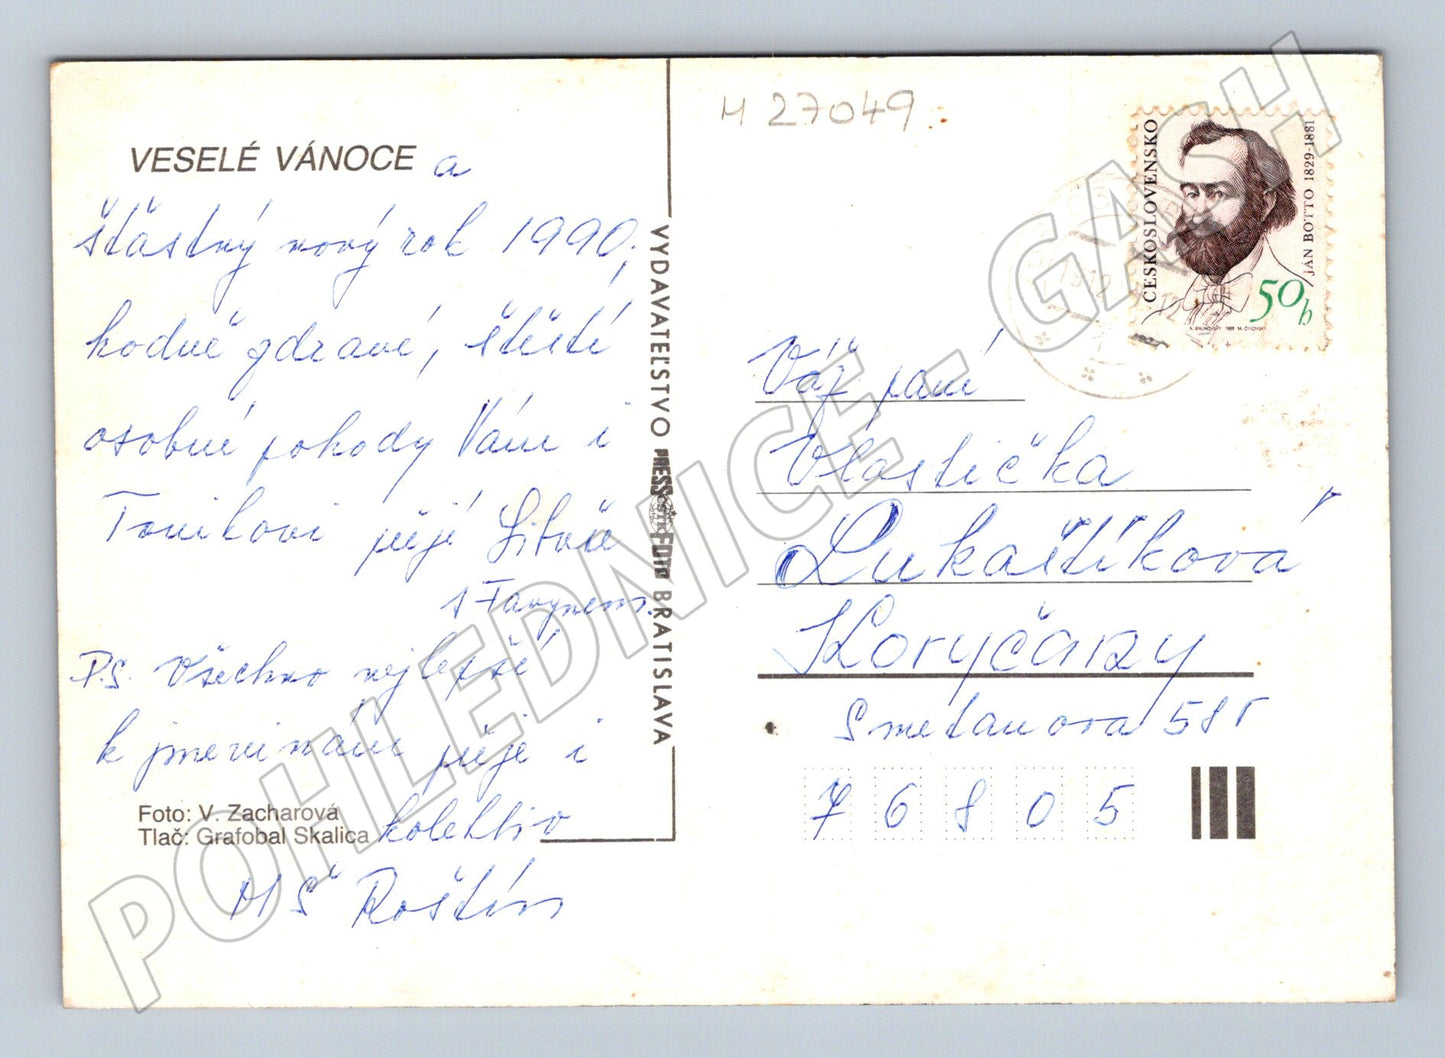 VESELÉ VÁNOCE a
šťastný nový rok 1990,
hodně zdraví, štěstí
osobní pohody Vám i
Toníkovi přejí Libuše
s Farynem.
P.S. Všechno nejlepší
k jmeninám přeje i
kolektiv
MŠ Roštín
Foto: V. Zacharová
Tlač: Grafobal Skalica
VYDAVATEĽSTVO PRESSFOTO BRATISLAVA
M 27049
ČESKOSLOVENSKO
JÁN BOTTO 1829-1881
50h
Váž paní
Vlastička
Lukaštíková
Koryčany
Smetanova 585
76805
POHLEDNICE - GASH